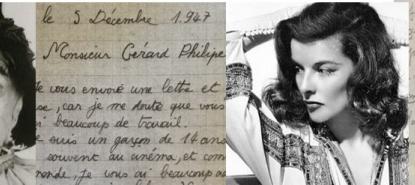 le 5 Décembre 1947
Monsieur Gérard Philipe
vous envoie une lettre et
se, car je me doute que vous
beaucoup de travail.
suis un garçon de 14 ans
souvent au cinéma, et com
monde, je vous ai beaucoup